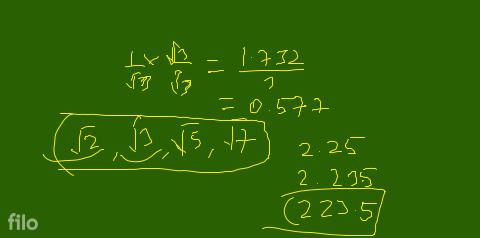 1/√3 × √3/√3 = 1.732/3
= 0.577
√2, √3, √5, √7
2.25
2.235
(223.5
filo